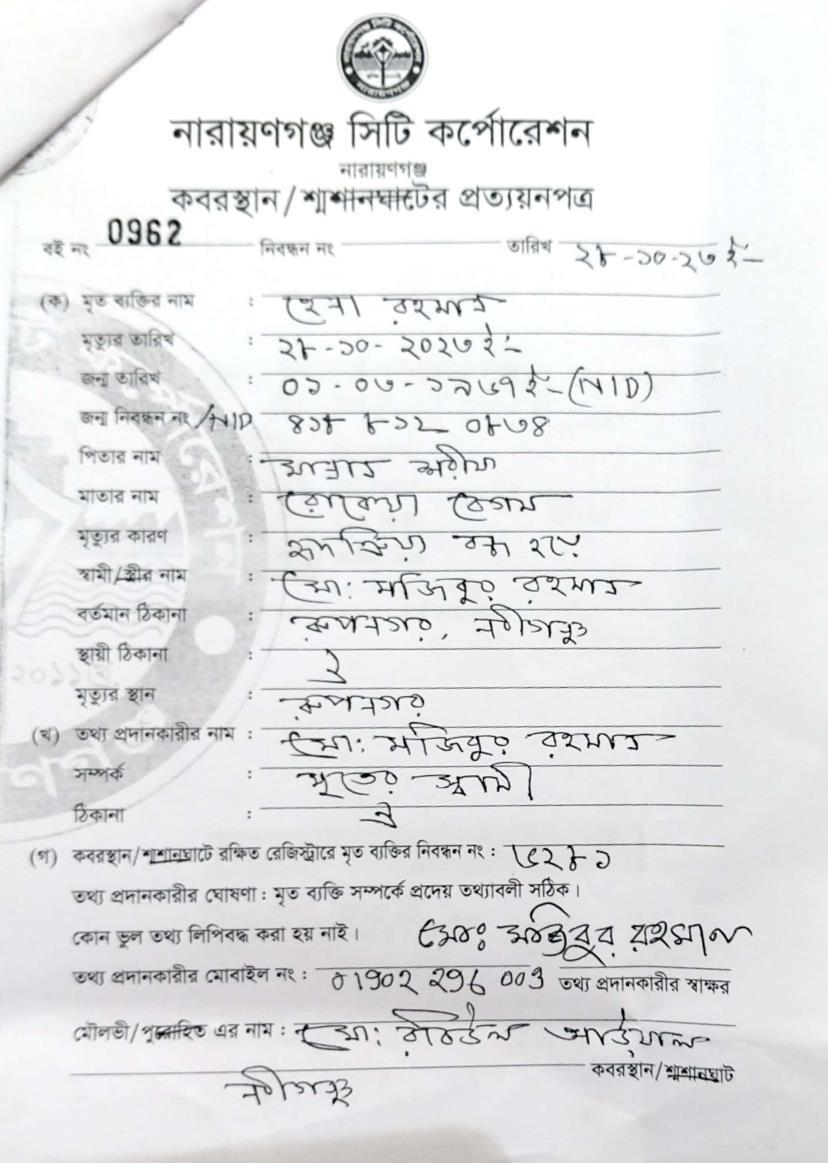 নারায়ণগঞ্জ সিটি কর্পোরেশন
নারায়ণগঞ্জ
কবরস্থান/শ্মশানঘাটের প্রত্যয়নপত্র
বই নং 0962 নিবন্ধন নং তারিখ ২৮-১০-২৩ ইং
(ক) মৃত ব্যক্তির নাম : হেনা রহমান
মৃত্যুর তারিখ : ২৮-১০-২০২৩ ইং
জন্ম তারিখ : ০১-০৩-১৯৬৭ ইং (NID)
জন্ম নিবন্ধন নং/NID ৪১৮ ৮১২ ০৮৩৪
পিতার নাম : মান্নান শরীফ
মাতার নাম : রোকেয়া বেগম
মৃত্যুর কারণ : হৃদক্রিয়া বন্ধ হয়ে
স্বামী/স্ত্রীর নাম : মো: মজিবুর রহমান
বর্তমান ঠিকানা : রুপনগর,
স্থায়ী ঠিকানা : ঐ
মৃত্যুর স্থান : রুপনগর
(খ) তথ্য প্রদানকারীর নাম : মো: মজিবুর রহমান
সম্পর্ক : মৃতের স্বামী
ঠিকানা : ঐ
(গ) কবরস্থান/শ্মশানঘাটে রক্ষিত রেজিস্ট্রারে মৃত ব্যক্তির নিবন্ধন নং :
তথ্য প্রদানকারীর ঘোষণা : মৃত ব্যক্তি সম্পর্কে প্রদেয় তথ্যাবলী সঠিক।
কোন ভুল তথ্য লিপিবদ্ধ করা হয় নাই। মোঃ মজিবুর রহমান
তথ্য প্রদানকারীর মোবাইল নং : 01902 296 003 তথ্য প্রদানকারীর স্বাক্ষর
মৌলভী/পুরোহিত এর নাম : মো:
কবরস্থান/শ্মশানঘাট